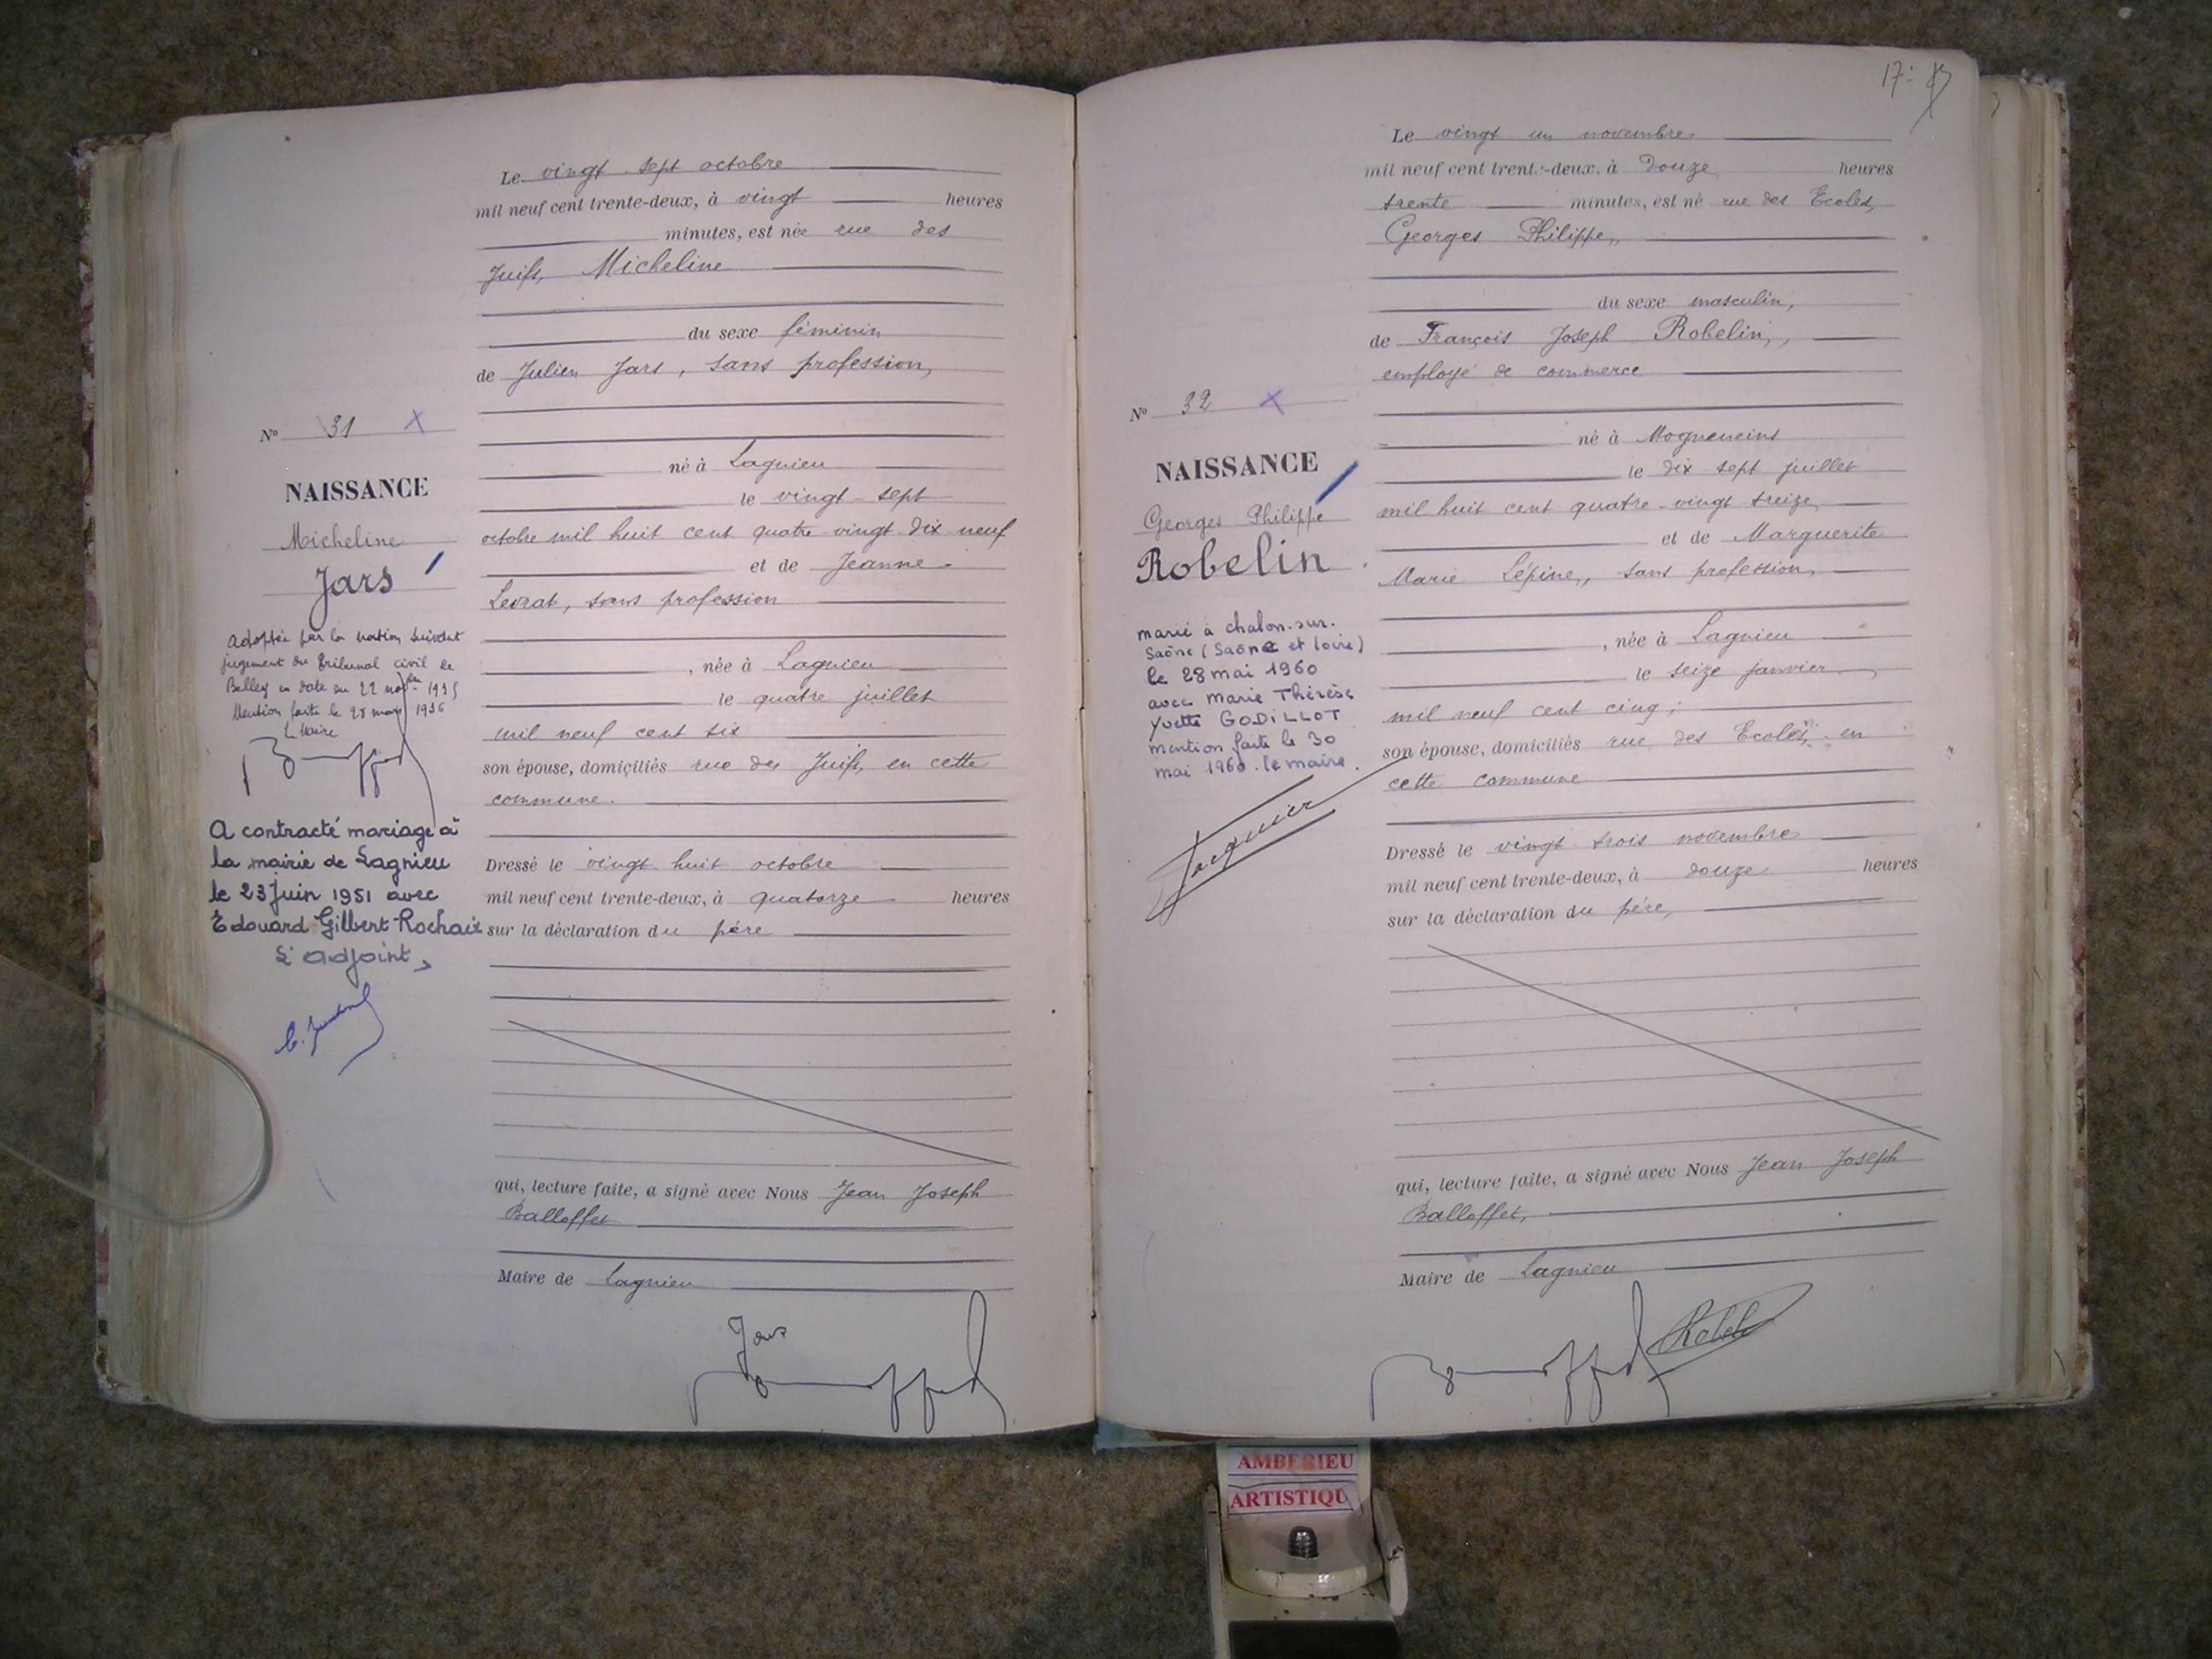 Le vingt sept octobre
mil neuf cent trente-deux, à vingt heures
minutes, est née rue des
Juifs, Micheline
du sexe féminin
de Julien Jars, sans profession,
né à Lagnieu
le vingt sept
octobre mil huit cent quatre vingt dix neuf
et de Jeanne
Levrat, sans profession
, née à Lagnieu
le quatre juillet
mil neuf cent six
son épouse, domiciliés rue des Juifs, en cette
commune.
Dressé le vingt huit octobre
mil neuf cent trente-deux, à quatorze heures
sur la déclaration du père
qui, lecture faite, a signé avec Nous Jean Joseph
Balloffet
Maire de Lagnieu
Jars
No 31 X
NAISSANCE
Micheline
Jars
adoptée par la nation suivant
jugement du tribunal civil de
Belley en date du 22 novbre 1935
Mention faite le 28 mars 1936
Le Maire
A contracté mariage à
la mairie de Lagnieu
le 23 juin 1951 avec
Edouard Gilbert Rochaix
L'adjoint,
17
Le vingt un novembre
mil neuf cent trente-deux, à douze heures
trente minutes, est né rue des Ecoles,
Georges Philippe,
du sexe masculin,
de François Joseph Robelin,
employé de commerce
né à Mogneneins
le dix sept juillet
mil huit cent quatre-vingt treize
et de Marguerite
Marie Lépine, sans profession,
, née à Lagnieu
le seize janvier
mil neuf cent cinq;
son épouse, domiciliés rue des Ecoles, en
cette commune
Dressé le vingt trois novembre
mil neuf cent trente-deux, à douze heures
sur la déclaration du père,
qui, lecture faite, a signé avec Nous Jean Joseph
Balloffet,
Maire de Lagnieu
No 32 X
NAISSANCE
Georges Philippe
Robelin
marié à chalon-sur-
Saône (Saône et loire)
le 28 mai 1960
avec Marie Thérèse
Yvette GODILLOT
mention faite le 30
mai 1960. le maire.
Jacquier
AMBERIEU
ARTISTIQU